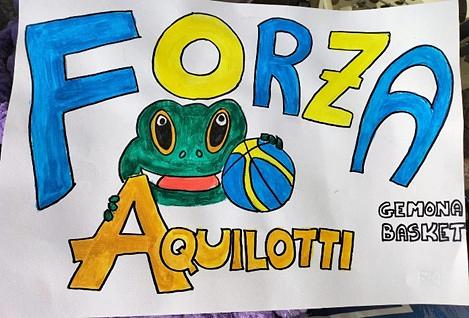 FORZA
AQUILOTTI
GEMONA
BASKET